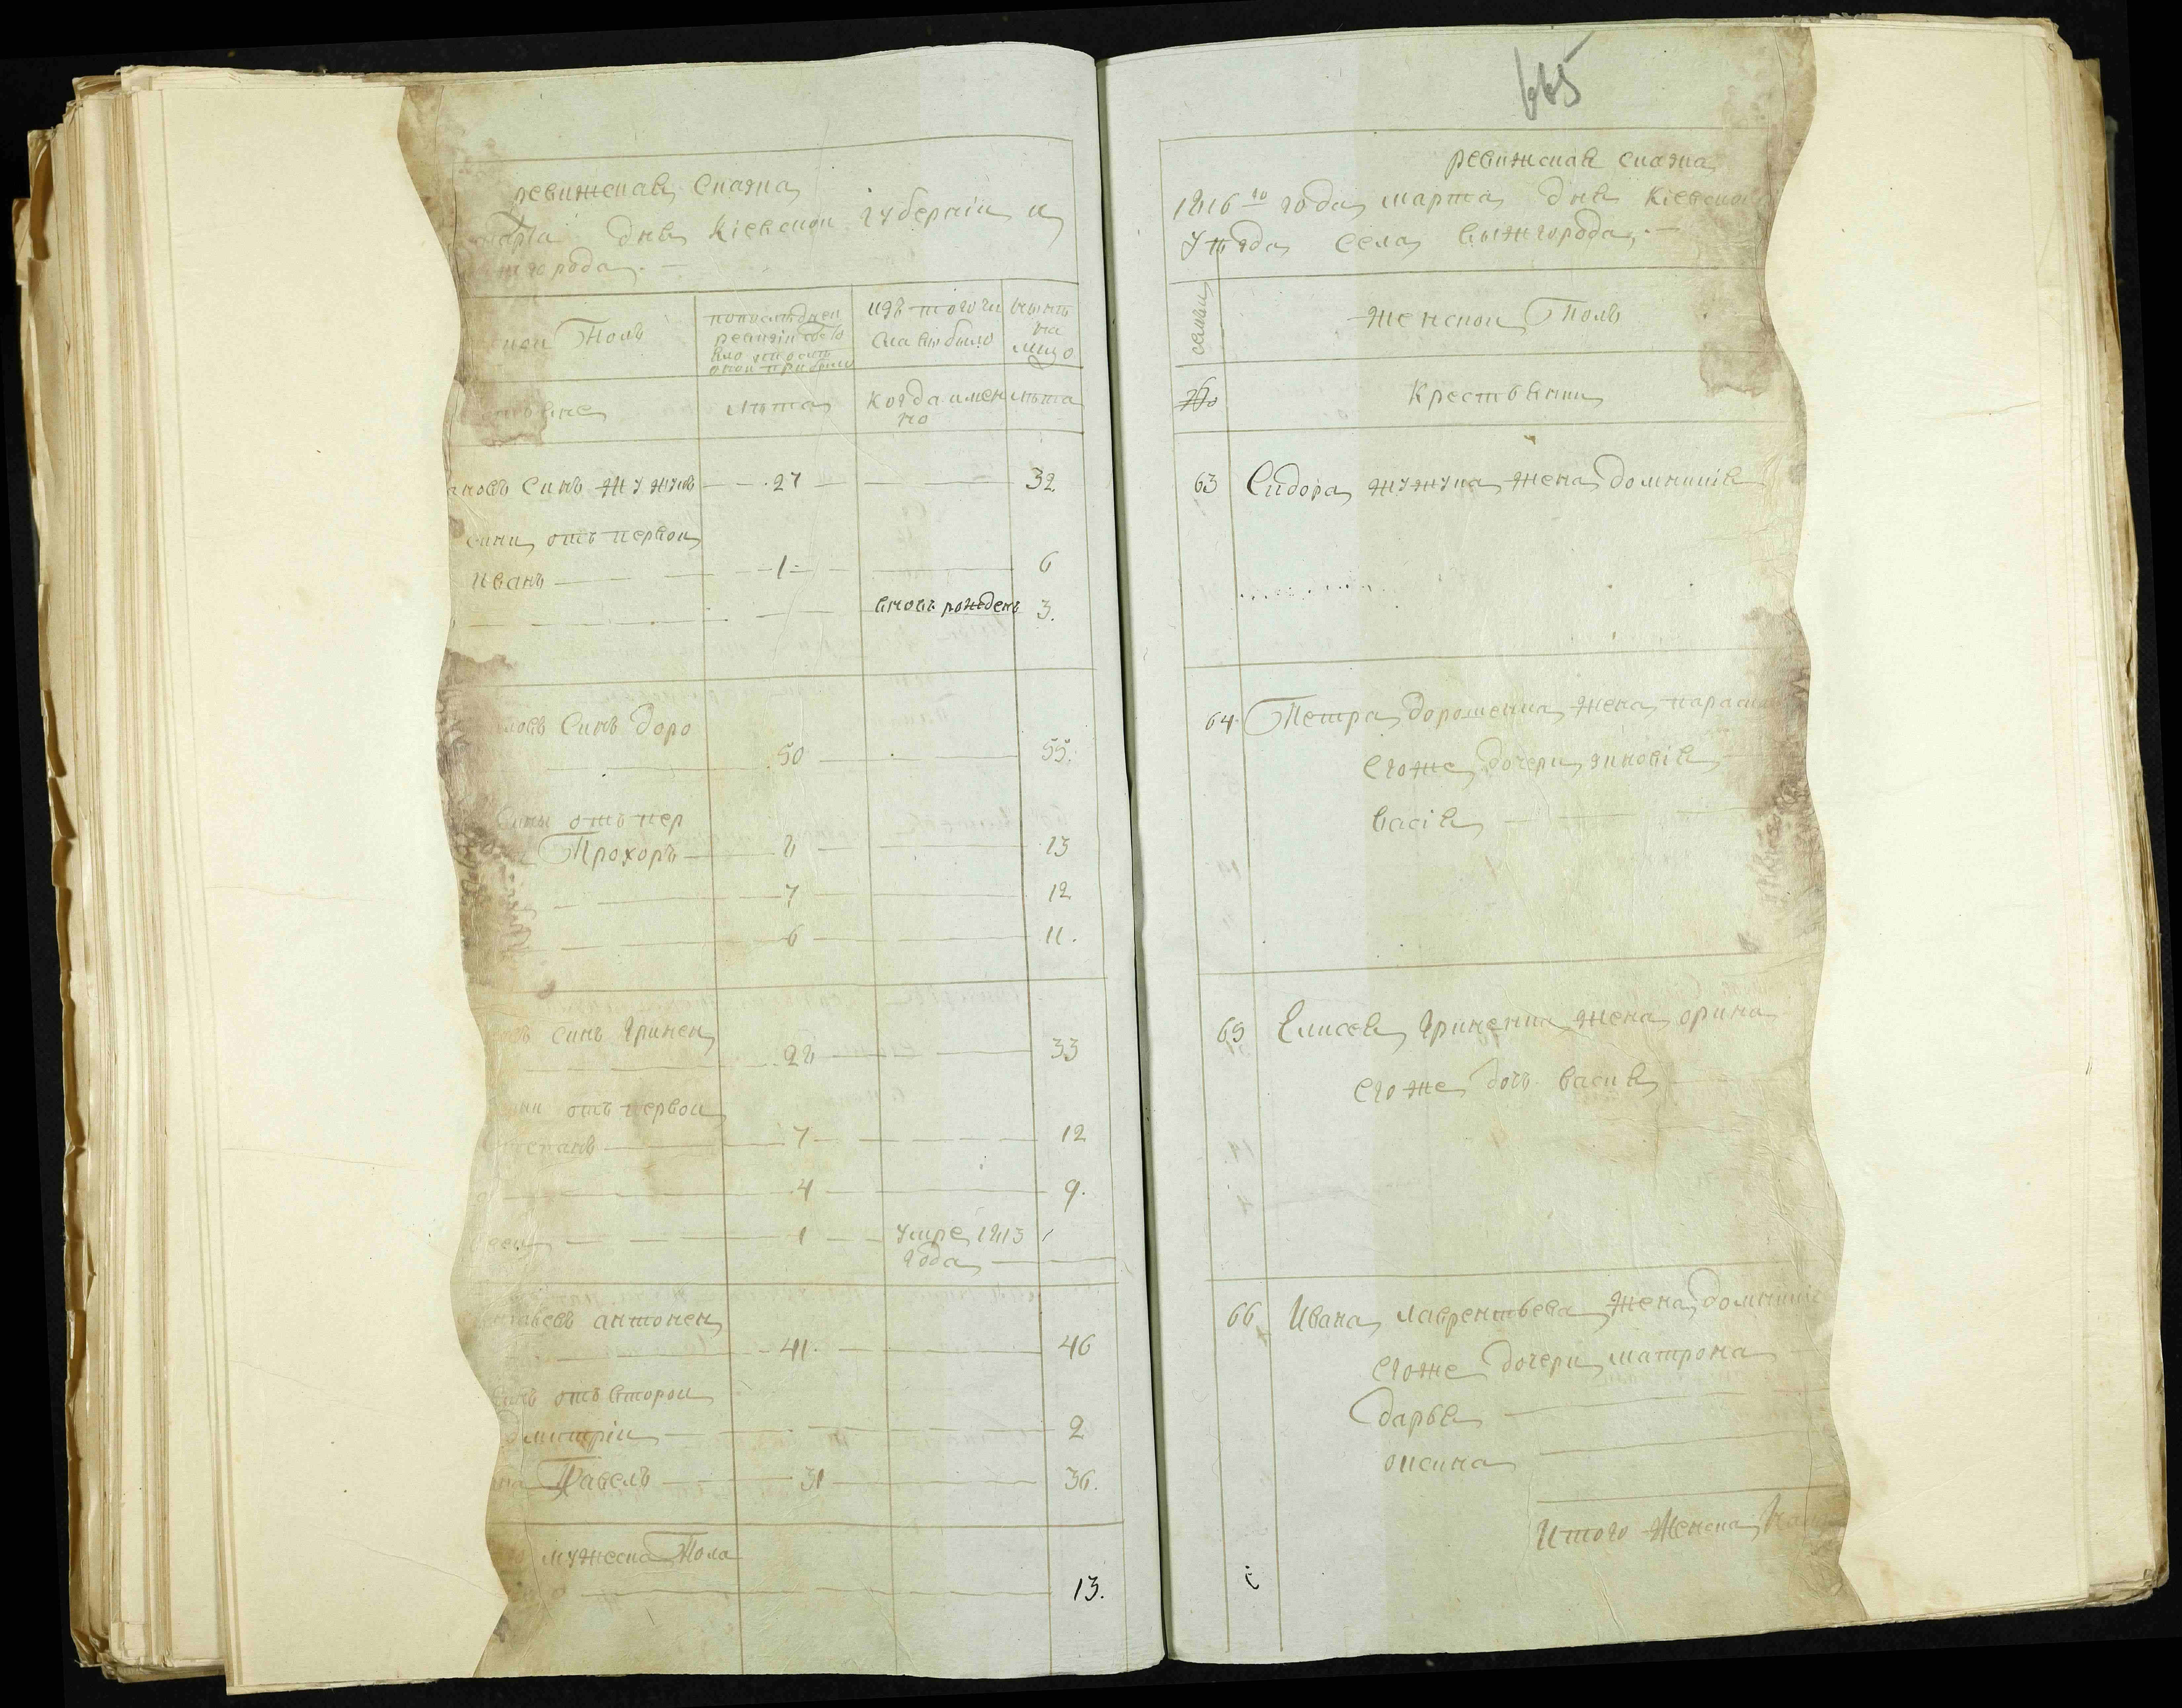 ревижская сказка
марта дня киевской губернии и
жгорода
ской Полъ
попоследней
ревизіи состо
яло и после
оной прибыло
изъ того чи
сла выбыло
ныне
на
лицо
лета
когда имен
но
лета
ановъ синъ жужукъ 27 32
сини отъ первой
иванъ 1 6
вновь рожденъ 3.
ловъ синъ доро
50 55.
сины отъ пер
Прохоръ 8 13
7 12
6 11.
синъ гринен
28 33
отъ первой
степанъ 7 12
4 9.
1 умре 1813
года
антонен
41 46
синъ отъ второй
дмитрій 2
Павелъ 31 36.
мужеска Пола
13.
665
ревижская сказка
1816 го года марта дня киевской
уезда села вижгорода
семьи
женской Полъ
№
крестьянки
63 Сидора жужука жена домникія
64. Петра дорошенка жена параск
егоже дочери зиновія
васія
65 Елисея гриненка жена орина
егоже дочъ васия
66 Ивана лаврентьева жена домникія
егоже дочери матрона
дарья
оксина
Итого женска